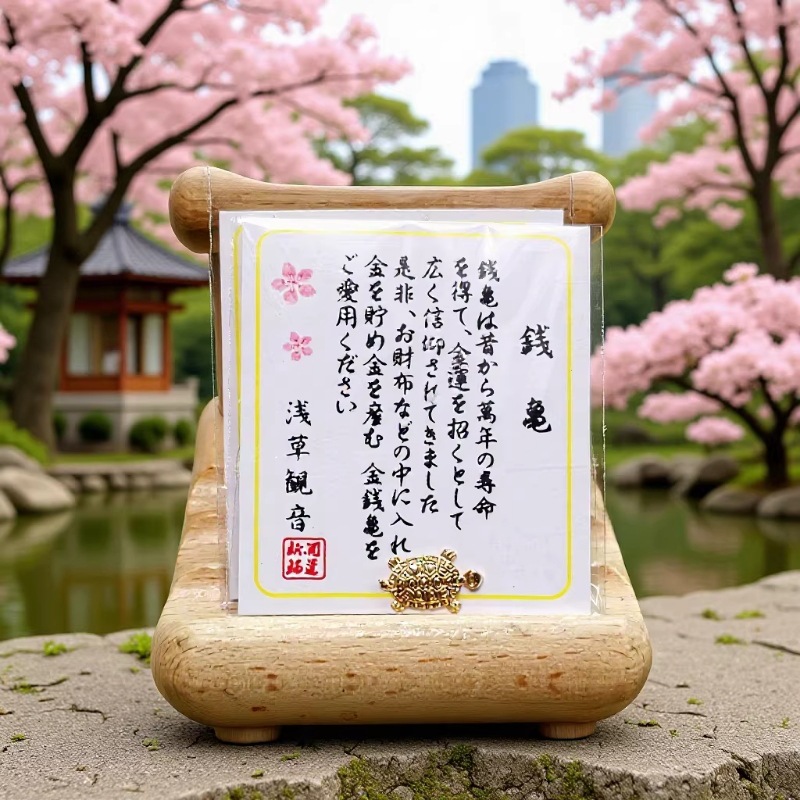 銭亀
銭亀は昔から萬年の寿命
を得て、金運を招くとして
広く信仰されてきました
是非、お財布などの中に入れ
金を貯め金を産む 金銭亀を
ご愛用ください
浅草観音
開運
祈福